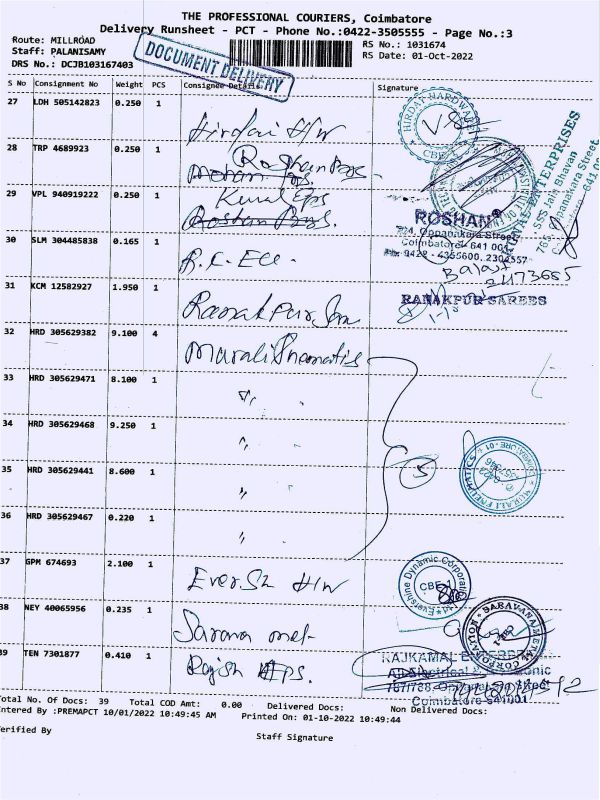 THE PROFESSIONAL COURIERS, Coimbatore
Delivery Runsheet - PCT - Phone No.:0422-3505555 - Page No.:3
Route: MILLROAD
Staff: PALANISAMY
DRS No.: DCJB103167403
DOCUMENT DELIVERY
RS No.: 1031674
RS Date: 01-Oct-2022
S No Consignment No Weight PCS Consignee Details Signature
27 LDH 505142823 0.250 1
Hirdai H/W
HIRDAI HARDWARE
CBE
28 TRP 4689923 0.250 1
Roshan Bags
29 VPL 940919222 0.250 1
Kunal Eps
Roshan Bags
ROSHAN
724, Oppanakara Street
Coimbatore - 641 001
Ph: 0422 - 4355600, 2304557
ENTERPRISES
SGS Jain Bhavan
Oppanakara Street
30 SLM 304485838 0.165 1
R.K. Ele -
31 KCM 12582927 1.950 1
Ranakpur
RANAKPUR SAREES
32 HRD 305629382 9.100 4
Murali
33 HRD 305629471 8.100 1
34 HRD 305629468 9.250 1
35 HRD 305629441 8.600 1
5
MURALI PNEUMATICS
36 HRD 305629467 0.220 1
37 GPM 674693 2.100 1
Evershine H/W
Evershine Dynamic Corporation
CBE-1
38 NEY 40065956 0.235 1
Sarvana metal
SARAVANA METAL CORPORATION
39 TEN 7301877 0.410 1
Rajesh Eps.
RAJKAMAL ENTERPRISES
All Electrical & Electronic
787/788, Oppanakara Street
Coimbatore-641001
Total No. Of Docs: 39 Total COD Amt: 0.00 Delivered Docs: Non Delivered Docs:
Entered By :PREMAPCT 10/01/2022 10:49:45 AM Printed On: 01-10-2022 10:49:44
Verified By
Staff Signature